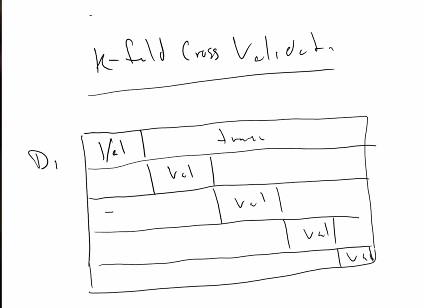 K-fold Cross Validat.
D1 Val train
Val
- Val
Val
Val